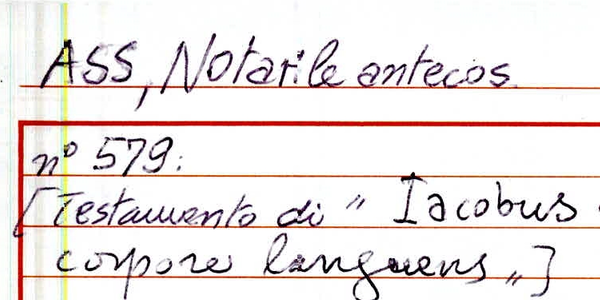 ASS, Notarile antecos.
n° 579:
[Testamento di " Iacobus
corpore languens „]